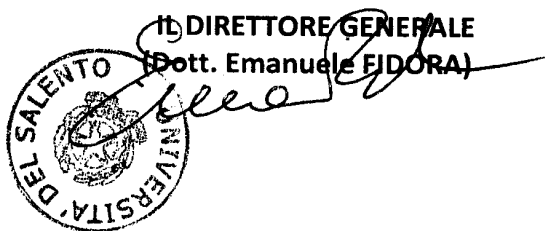 IL DIRETTORE GENERALE
(Dott. Emanuele FIDORA)
UNIVERSITA' DEL SALENTO